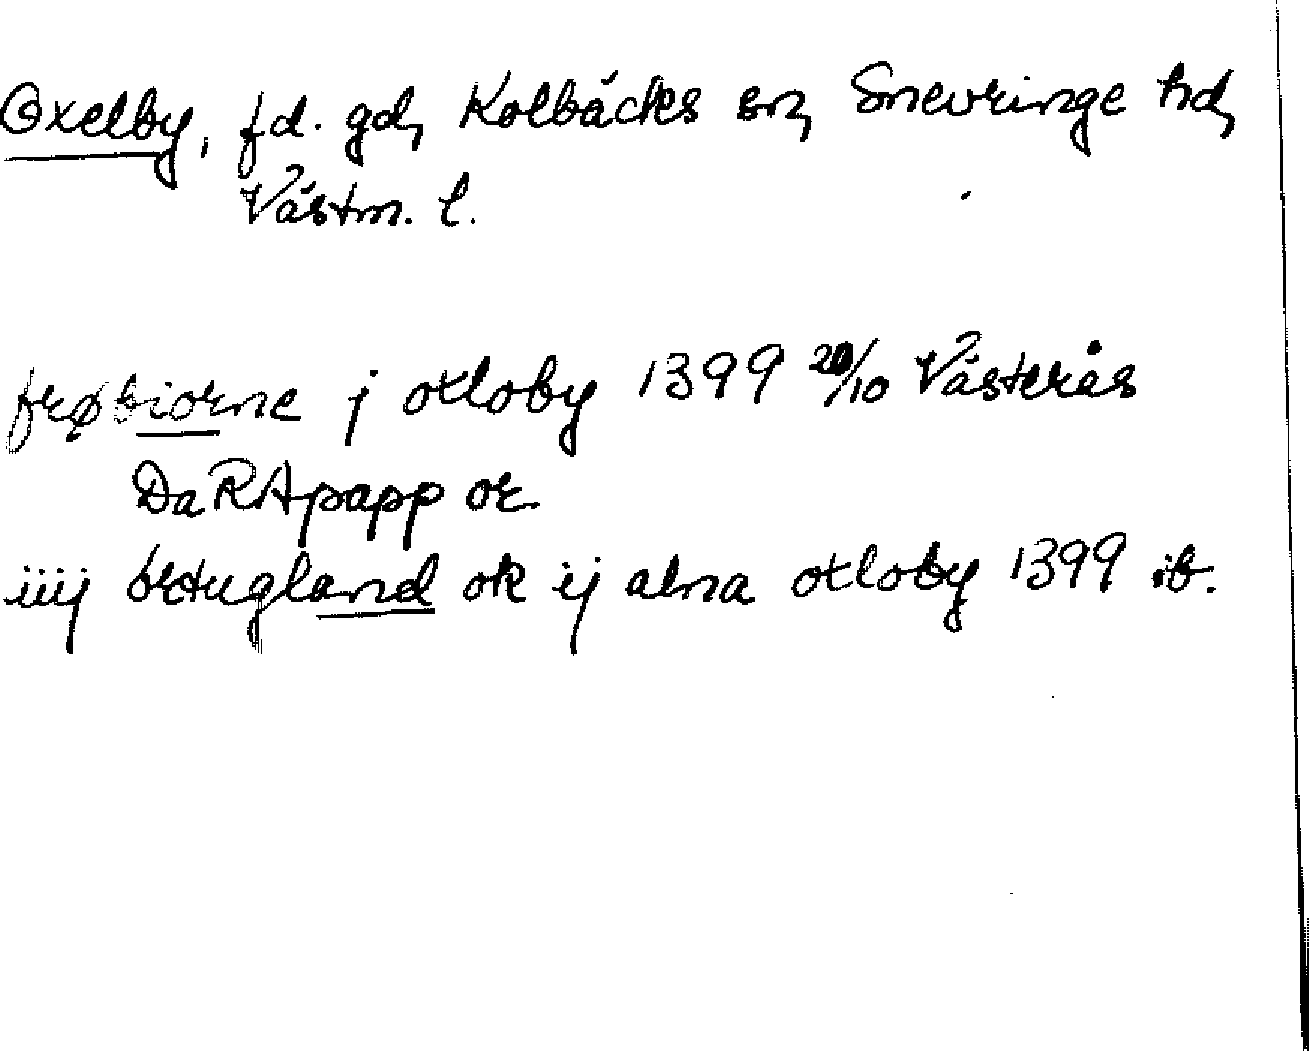 Oxelby, fd. gd, Kolbäcks sn, Snevringe hd,
Västm. l.
frøbiorne j otloby 1399 20/10 Västerås
DaRApapp or
iiij ørtugland ok ij alna otloby 1399 ib.